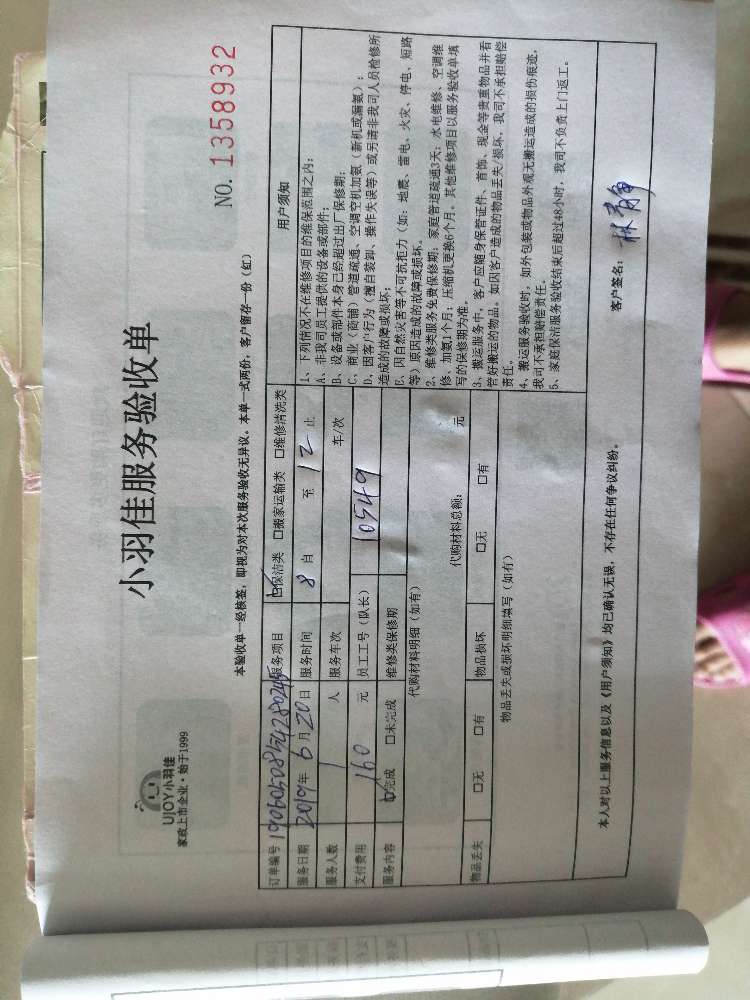 UJOY小羽佳
家政上市企业·始于1999
小羽佳服务验收单
NO. 1358932
本验收单一经核签，即视为对本次服务验收无异议。本单一式两份，客户留存一份（红）
订单编号 服务项目 ☑保洁类 □搬家运输类 □维修清洗类
服务日期 2019年 6月20日 服务时间 8 自 至 12 止
服务人数 1 人 服务车次 车/次
支付费用 160 元 员工工号（队长） 10549
服务内容 ☑完成 □未完成 维修类保修期
代购材料明细（如有）
代购材料总额： 元
物品丢失 □无 □有 物品损坏 □无 □有
物品丢失或损坏明细填写（如有）
用户须知
1、下列情况不在维修项目的维保范围之内：
A、非我司员工提供的设备或部件；
B、设备或部件本身已经超过出厂保修期；
C、商业（商铺）管道疏通、空调空机加氨（新机或漏氨）；
D、因客户行为（擅自装卸、操作失误等）或另请非我司人员检修所
造成的故障或损坏；
E、因自然灾害等不可抗拒力（如：地震、雷电、火灾、停电、短路
等）原因造成的故障或损坏。
2、维修类服务免费保修期：家庭管道疏通3天；水电维修、空调维
修、加氨1个月；压缩机更换6个月，其他维修项目以服务验收单填
写的保修期为准。
3、搬运服务中，客户应随身保管证件、首饰、现金等贵重物品并看
管好搬运的物品。如因客户造成的物品丢失/损坏，我司不承担赔偿
责任。
4、搬运服务验收时，如外包装或物品外观无搬运造成的损伤痕迹，
我司不承担赔偿责任。
5、家庭保洁服务验收结束后超过48小时，我司不负责上门返工。
本人对以上服务信息以及《用户须知》均已确认无误，不存在任何争议纠纷。
客户签名：